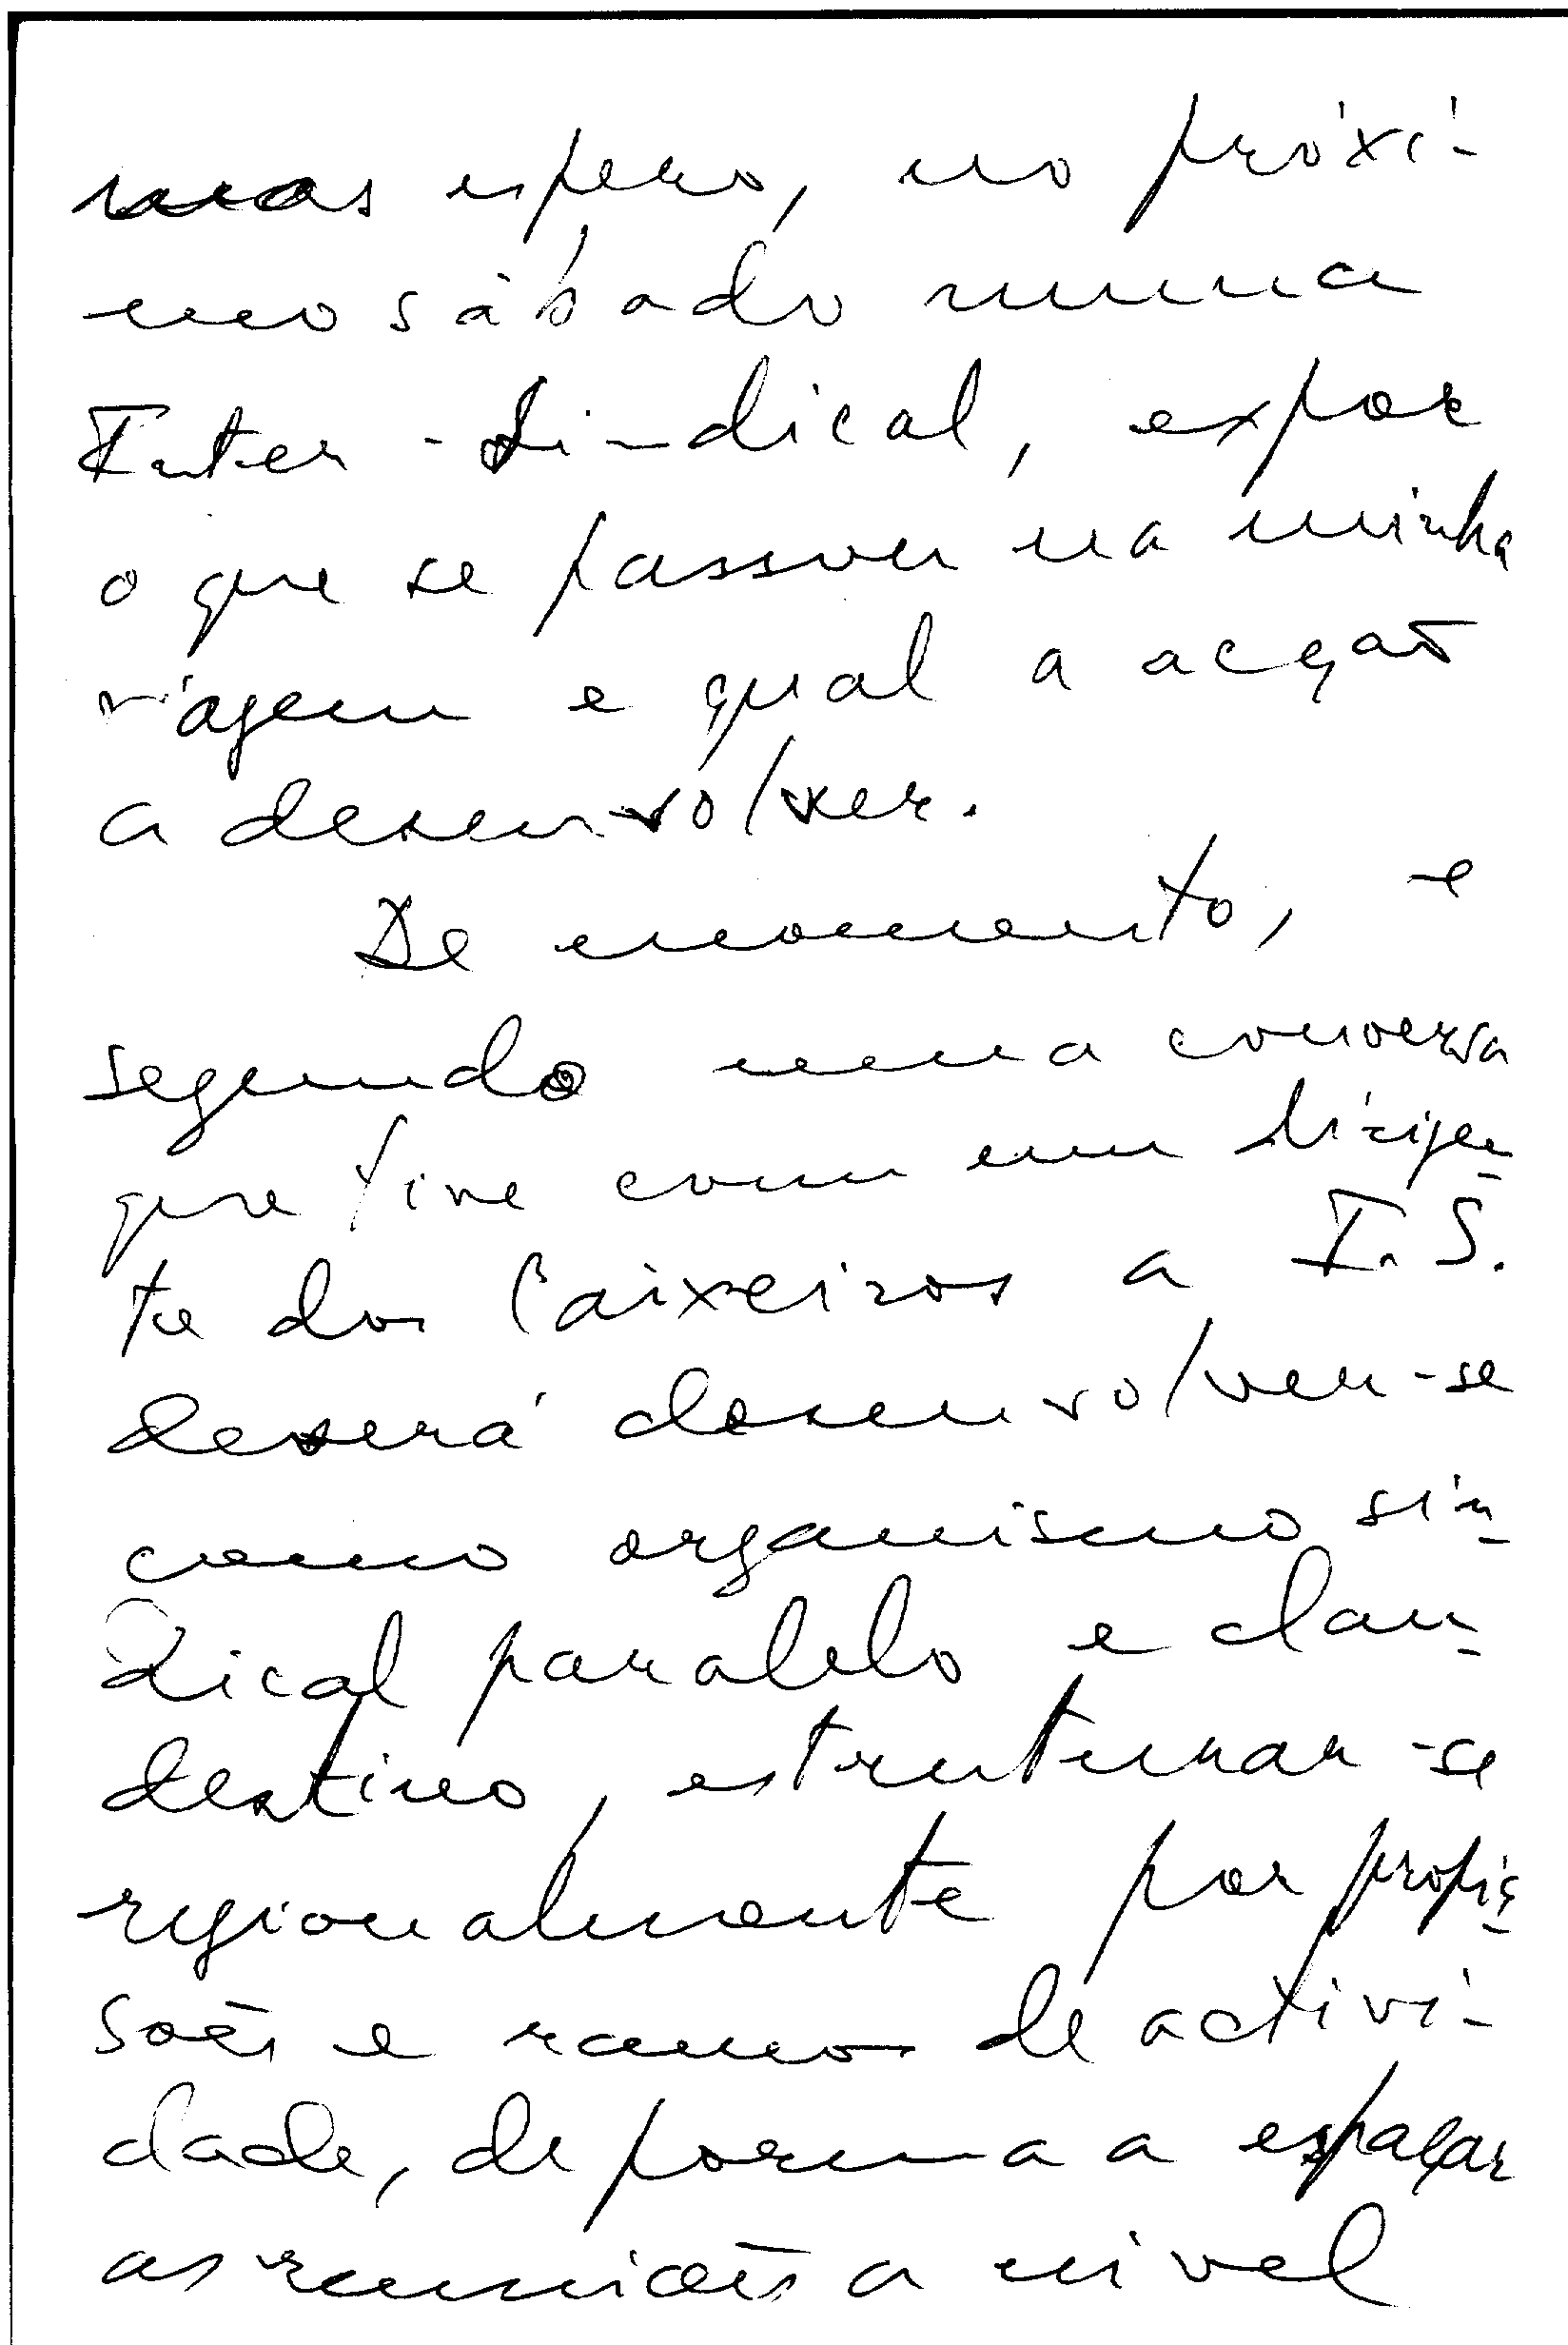 mas espero, no próxi-
mo sábado numa
Inter-Sindical, expor
o que se passou na minha
viagem e qual a acção
a desenvolver.
De momento, e
segundo uma conversa
que tive com um dirigen-
te dos Caixeiros a I.S.
deverá desenvolver-se
como organismo sin-
dical paralelo e clan-
destino, estruturar-se
regionalmente por profis-
sões e ramos de activi-
dade, de forma a espaçar
as reuniões a nivel